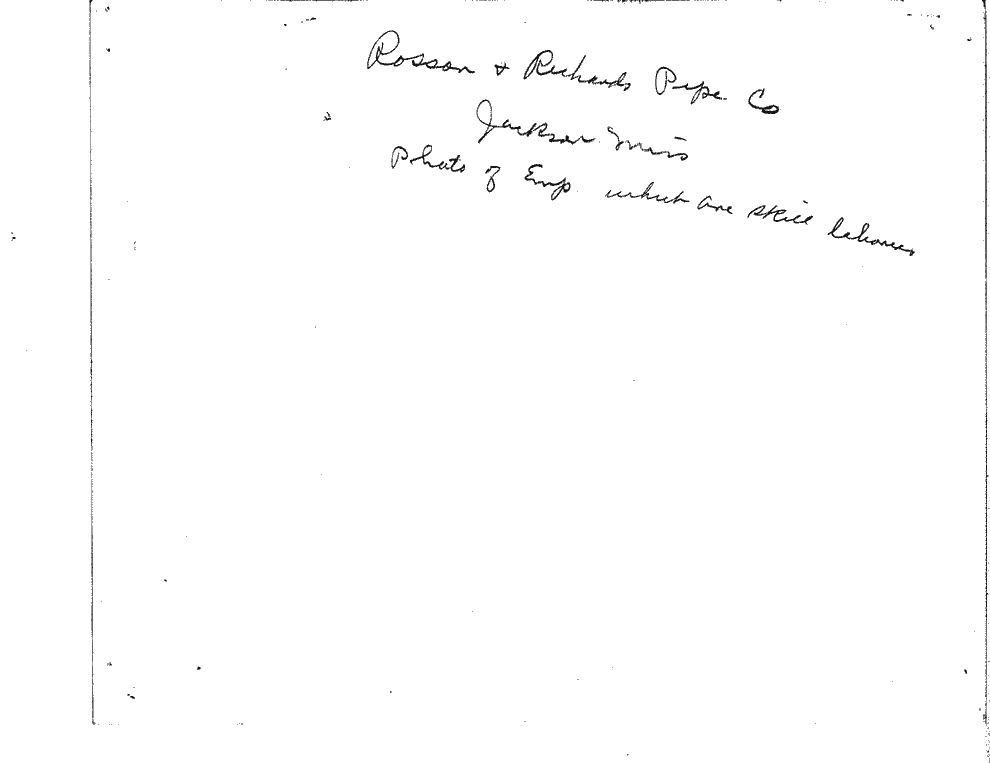 Rosson + Richards Pipe Co
Jackson Miss
Photo of Emp which are skill laborers